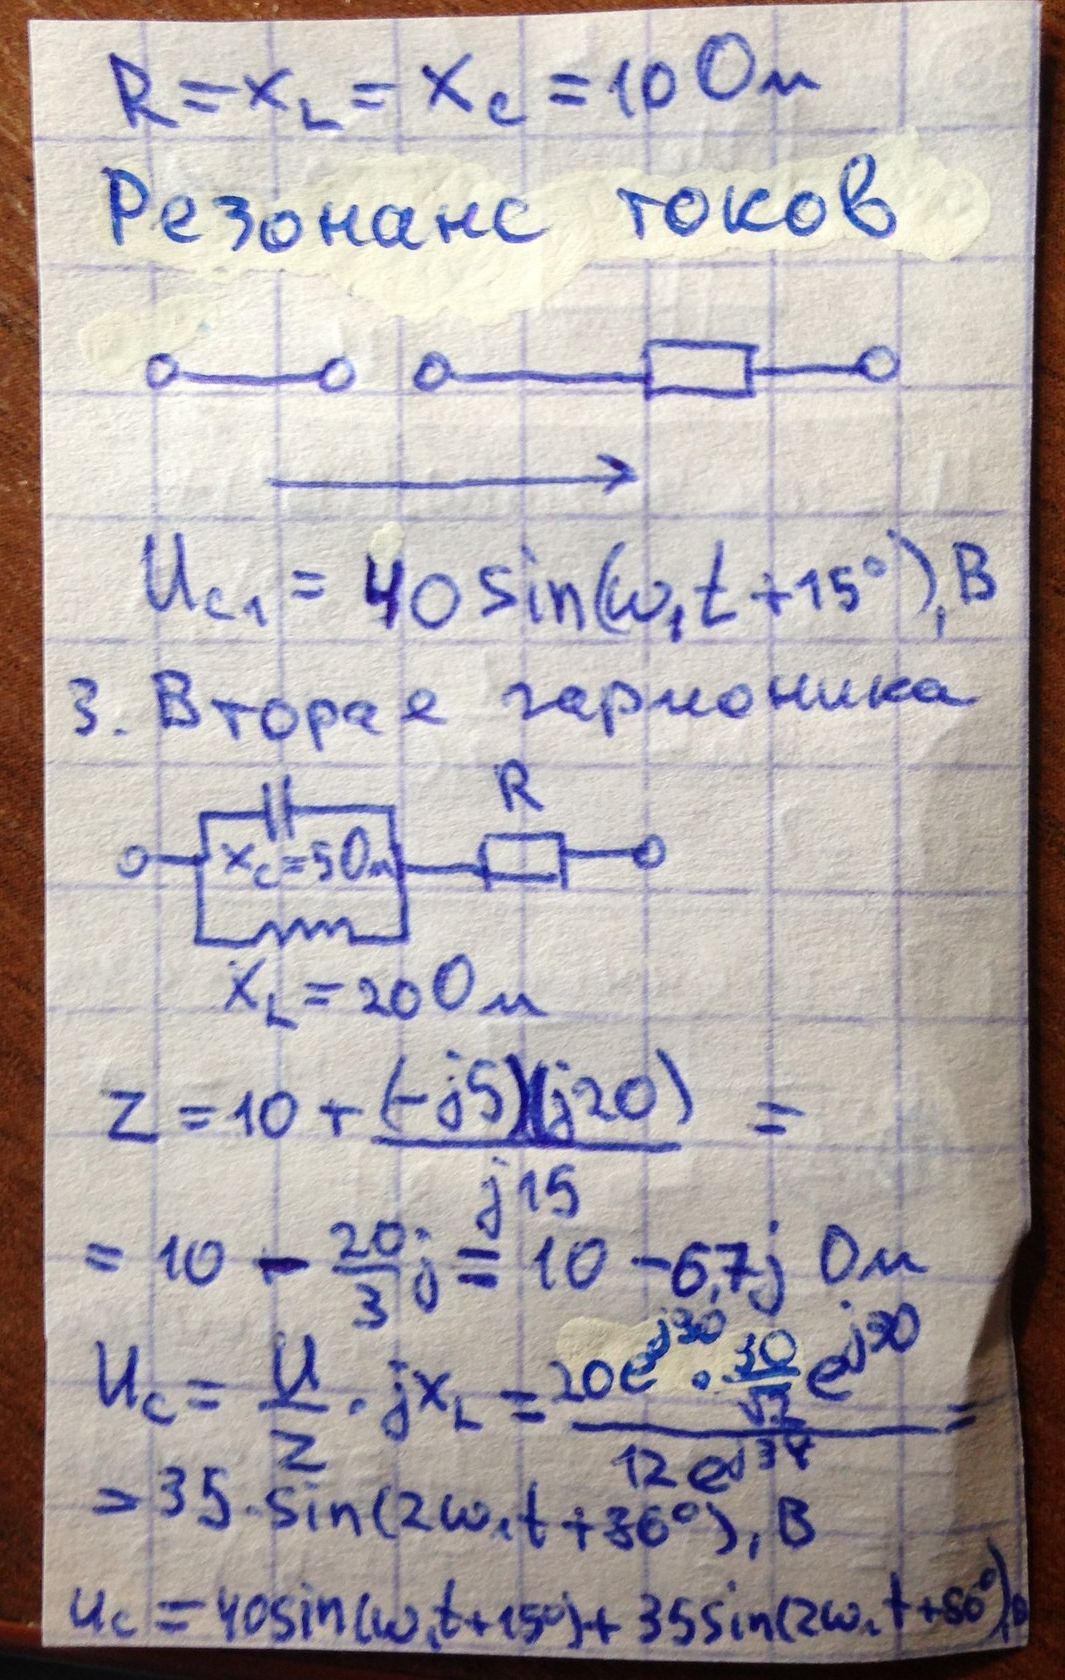 R = x_L = x_C = 10 Ом
Резонанс токов
U_C1 = 40 sin(ω₁t + 15°), В
3. Вторая гармоника
R
x_C = 5 Ом
x_L = 20 Ом
Z = 10 + (-j5)(j20) / j15 =
= 10 - 20/3 j = 10 - 6,7j Ом
U_C = U/Z · jx_L = 20e^j30 · 30/√2 e^j90 / 12e^j34 =
= 35 · sin(2ω₁t + 36°), В
u_C = 40sin(ω₁t + 15°) + 35sin(2ω₁t + 86°), В